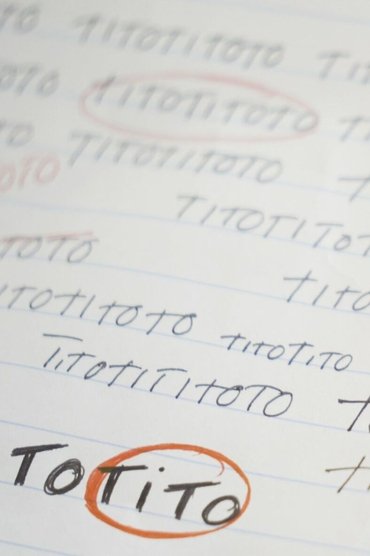 TO TITOTITOTO TI
OTO TITOTITOTO TI
TO TITOTITOTO T
OTO TITOTITOT
TOTO TITO
ITOTITOTO TITOTITO
TITOTITITOTO T
TOTiTO T